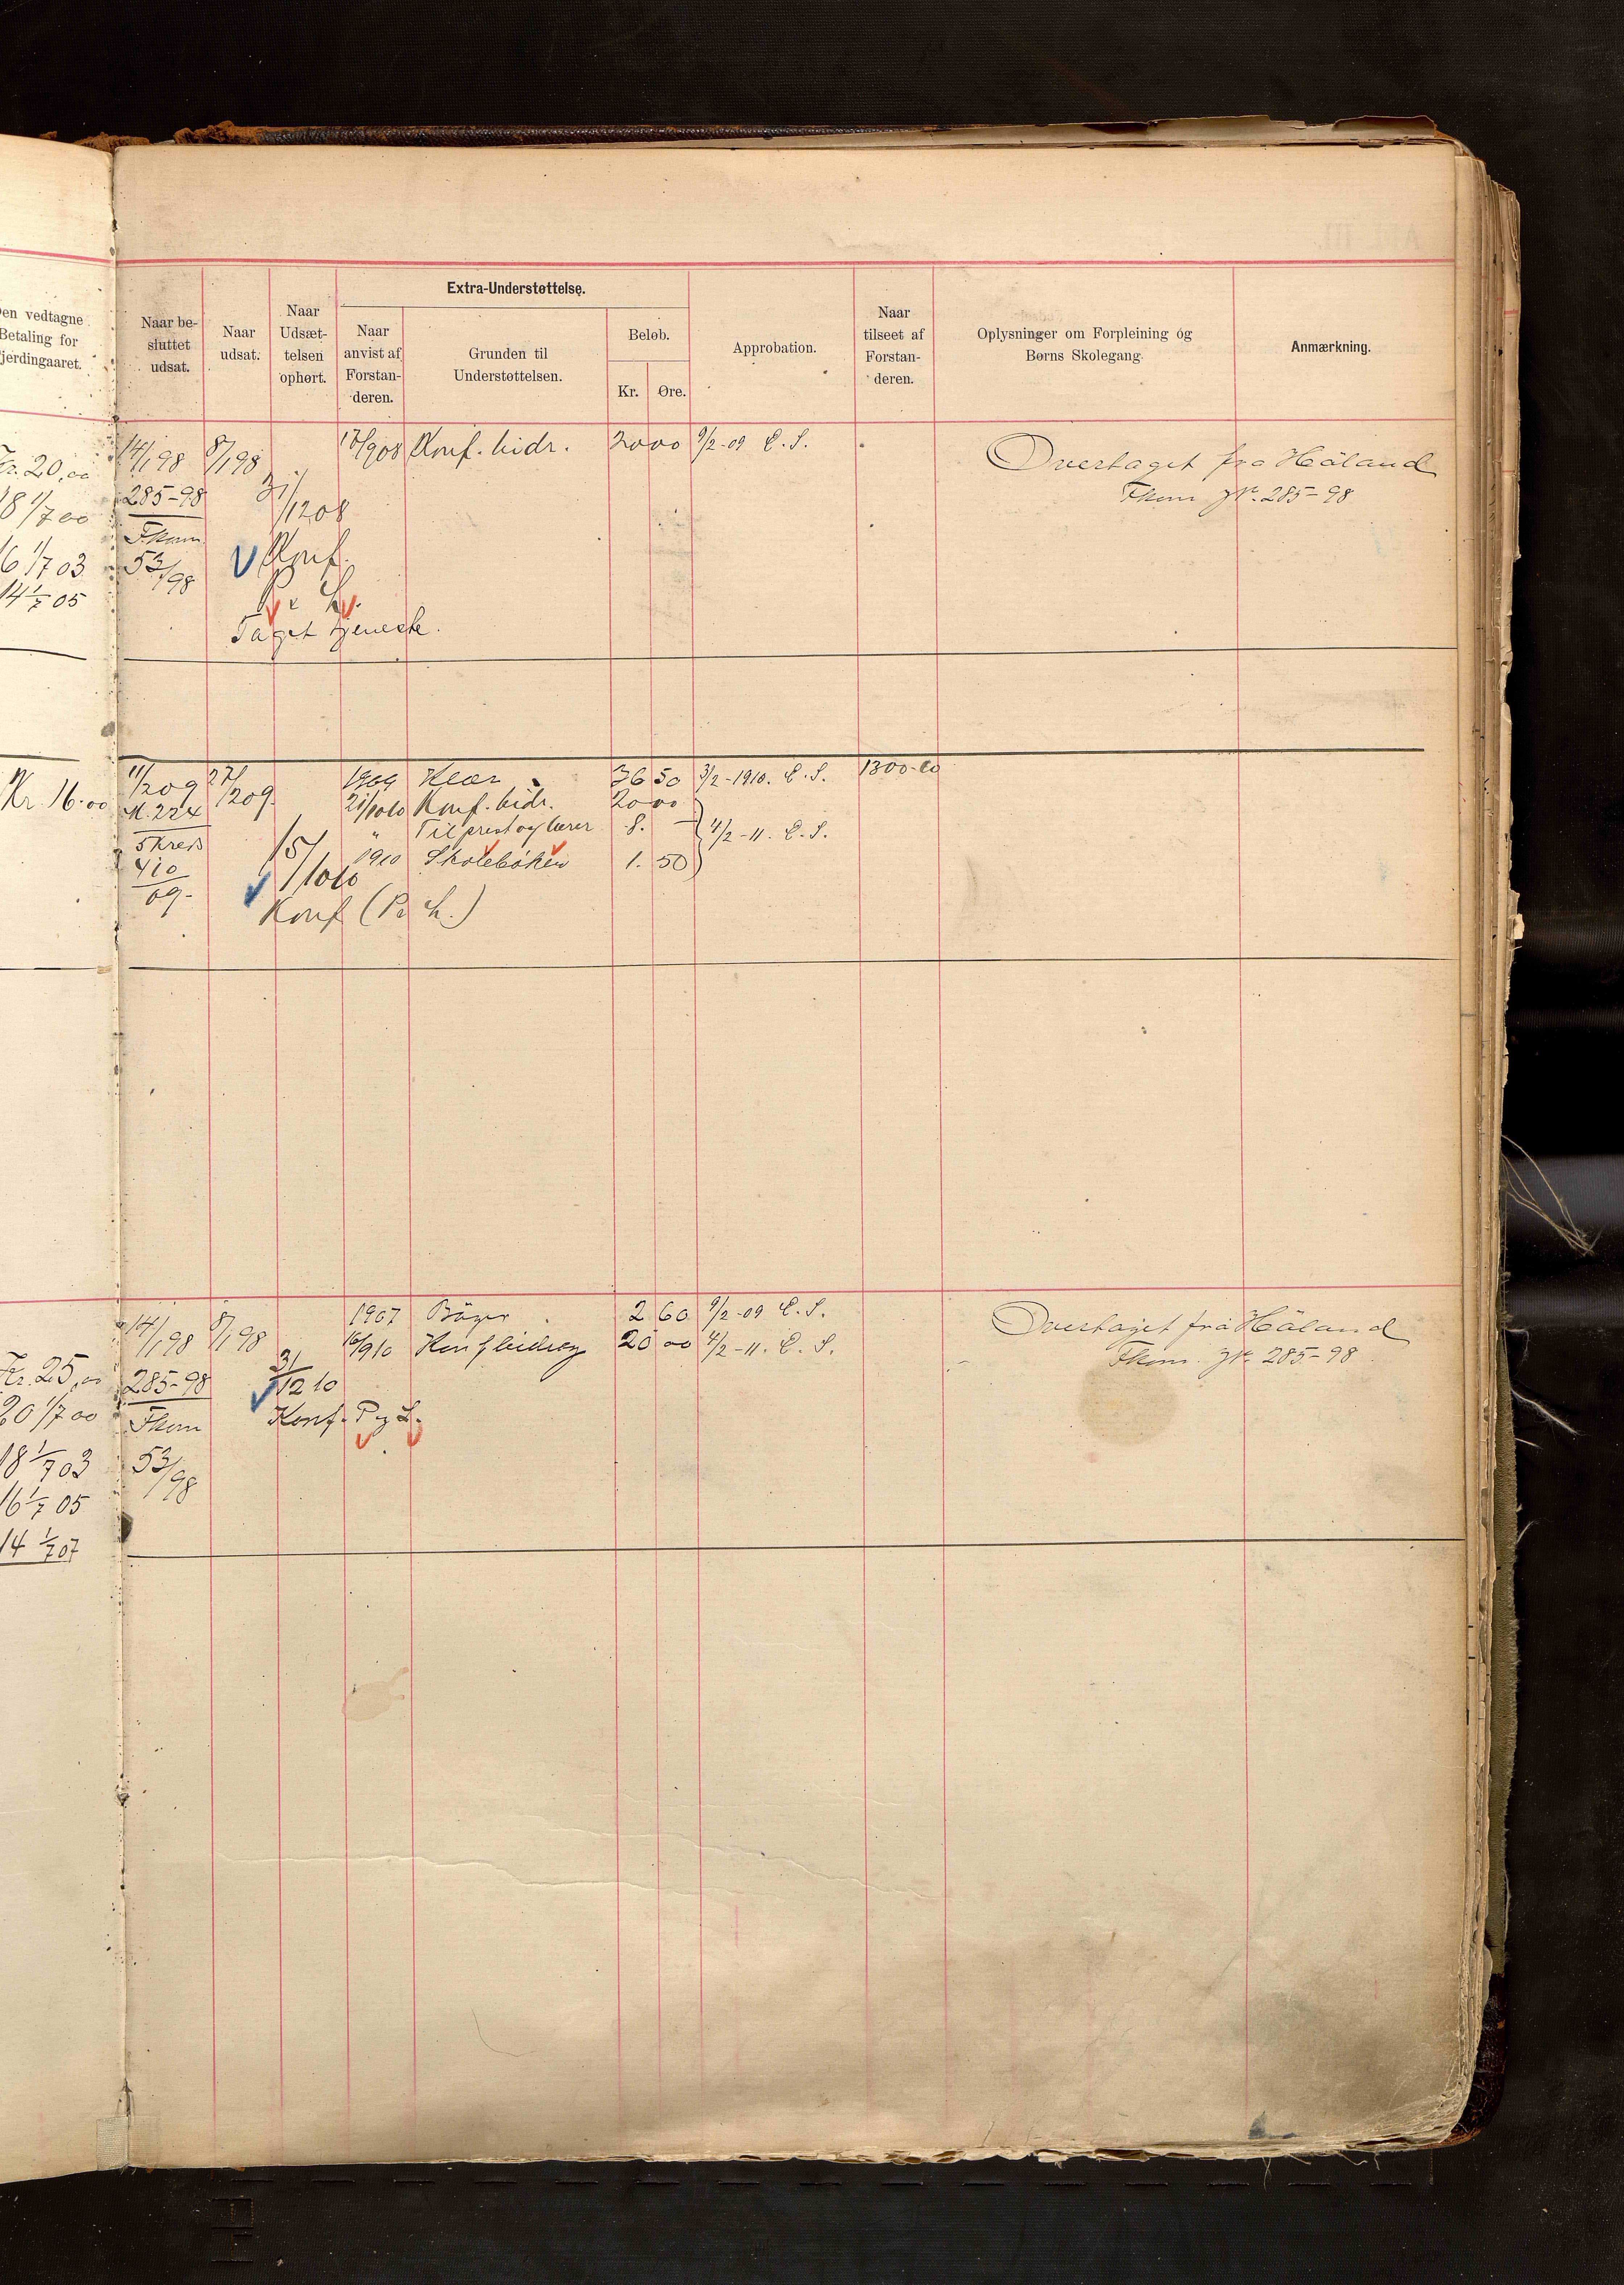 en vedtagne
Betaling for
jerdingaaret.
Naar be-
sluttet
udsat.
Naar
udsat.
Naar
Udsæt-
telsen
ophørt.
Extra-Understøttelse.
Naar
anvist af
Forstan-
deren.
Grunden til
Understøttelsen.
Beløb.
Kr. Øre.
Approbation.
Naar
tilseet af
Forstan-
deren.
Oplysninger om Forpleining og
Børns Skolegang.
Anmærkning.
Kr. 20,00
18 1/7 00
16 1/7 03
14 1/7 05
14/1 98 8/1 98
285-98
Fkom
53/98
31/12 08
Konf.
P. L.
Taget tjeneste.
/908 Konf. bidr. 20 00 9/2-09 C. S.
Overtaget fra Håland
Fkom J№. 285-98
Kr. 16.00
11/2 09 27/2 09
M. 224
5 Kreds
410
09.
15/10 10
Konf (P L.)
1909 Klær 36 50 3/2-1910. C. S. 1300.
21/10 10 Konf. bidr. 20 00
" Til prest og lærer 8. — 4/2-11. C. S.
1910 Skolebøker 1. 50
Kr. 25,00
20 1/7 00
18 1/7 03
16 1/7 05
14 1/7 07
14/1 98 8/1 98
285-98
Fkom
53/98
31/12 10
Konf. P og L.
1907 Bøger 2 60 9/2-09 C. S.
16/9 10 Konfbidrag 20 00 4/2-11. C. S.
Overtaget fra Håland
Fkom. J№. 285-98